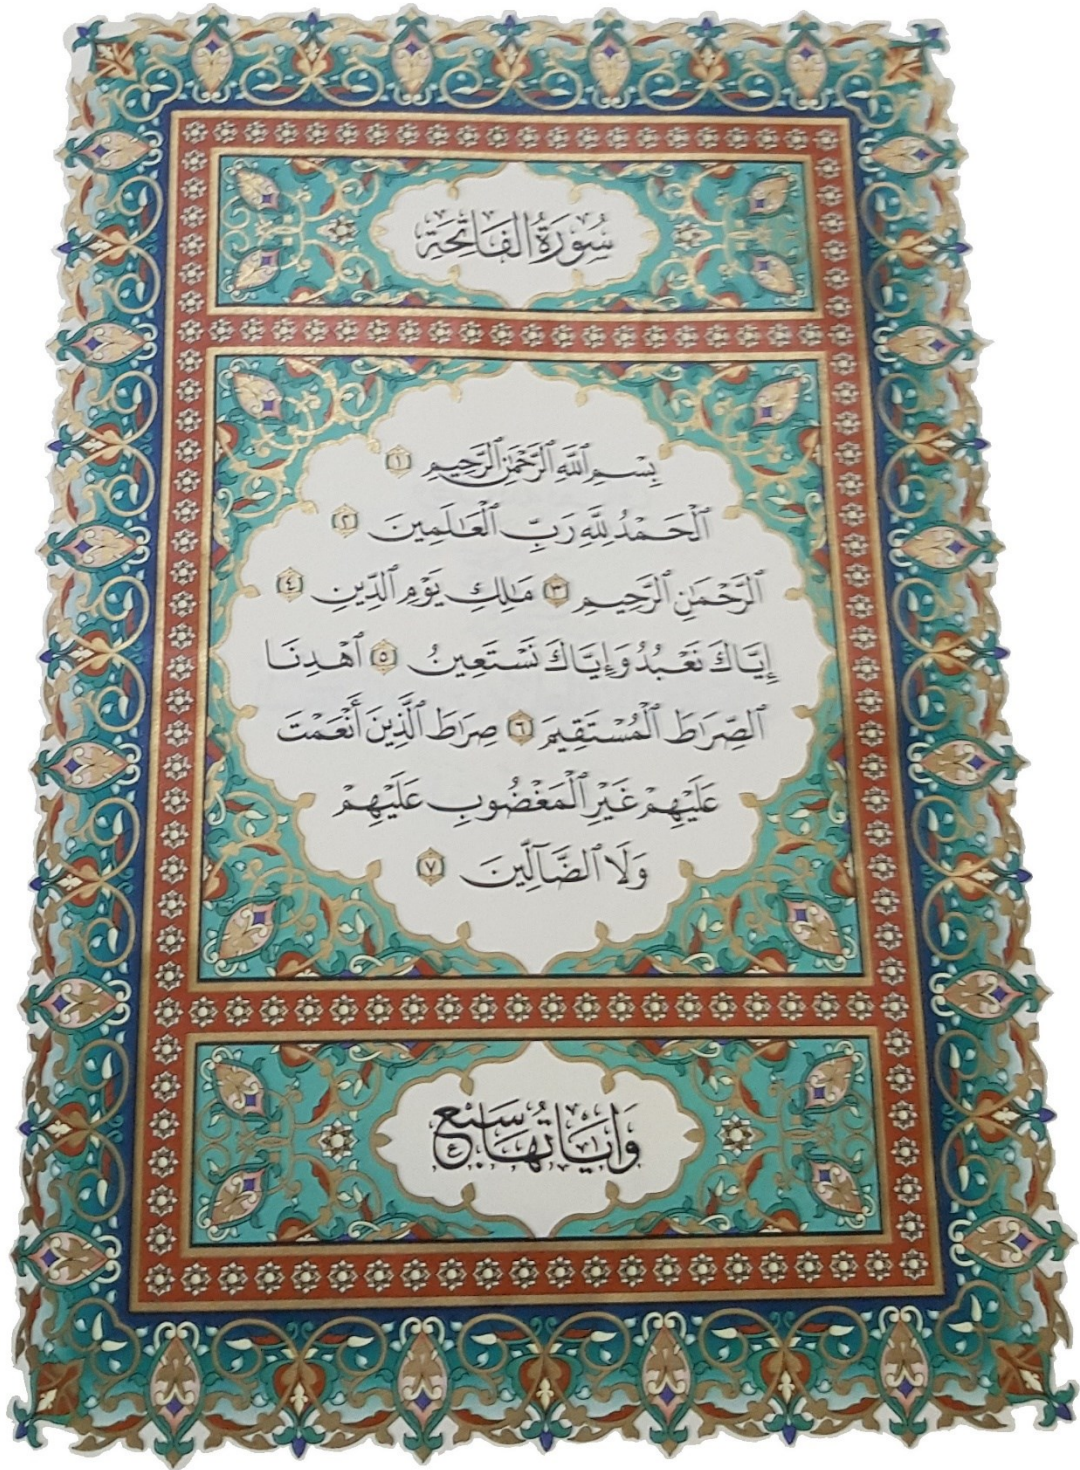 سُورَةُ الْفَاتِحَةِ
بِسْمِ ٱللَّهِ ٱلرَّحْمَٰنِ ٱلرَّحِيمِ ١
ٱلْحَمْدُ لِلَّهِ رَبِّ ٱلْعَٰلَمِينَ ٢
ٱلرَّحْمَٰنِ ٱلرَّحِيمِ ٣ مَٰلِكِ يَوْمِ ٱلدِّينِ ٤
إِيَّاكَ نَعْبُدُ وَإِيَّاكَ نَسْتَعِينُ ٥ ٱهْدِنَا
ٱلصِّرَٰطَ ٱلْمُسْتَقِيمَ ٦ صِرَٰطَ ٱلَّذِينَ أَنْعَمْتَ
عَلَيْهِمْ غَيْرِ ٱلْمَغْضُوبِ عَلَيْهِمْ
وَلَا ٱلضَّآلِّينَ ٧
وَآيَاتُهَا سَبْع